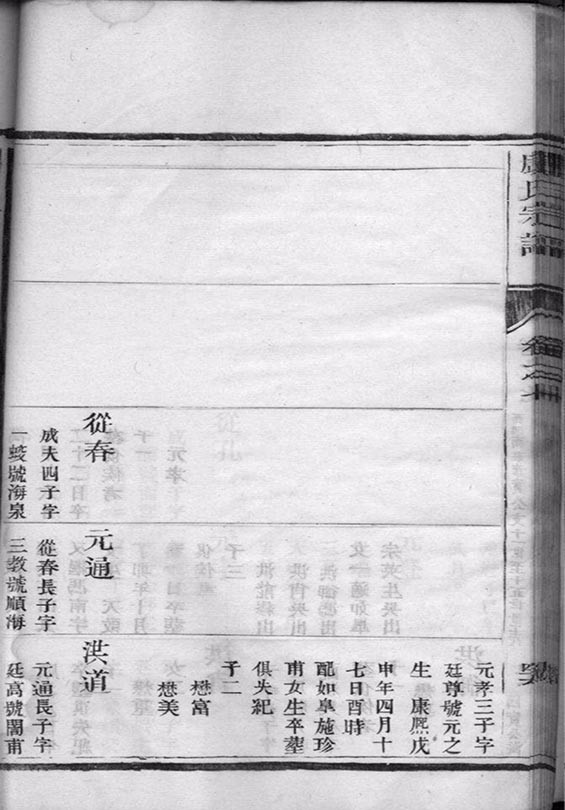 盧氏宗譜
卷之
元孝三子字
廷尊號元之
生康熙戊
申年四月十
七日酉時
配如皐施珍
甫女生卒塟
俱失紀
子二
懋富
懋美
從春
成夫四子字
一蛟號海泉
元通
從春長子字
三教號順海
洪道
元通長子字
廷高號閣甫